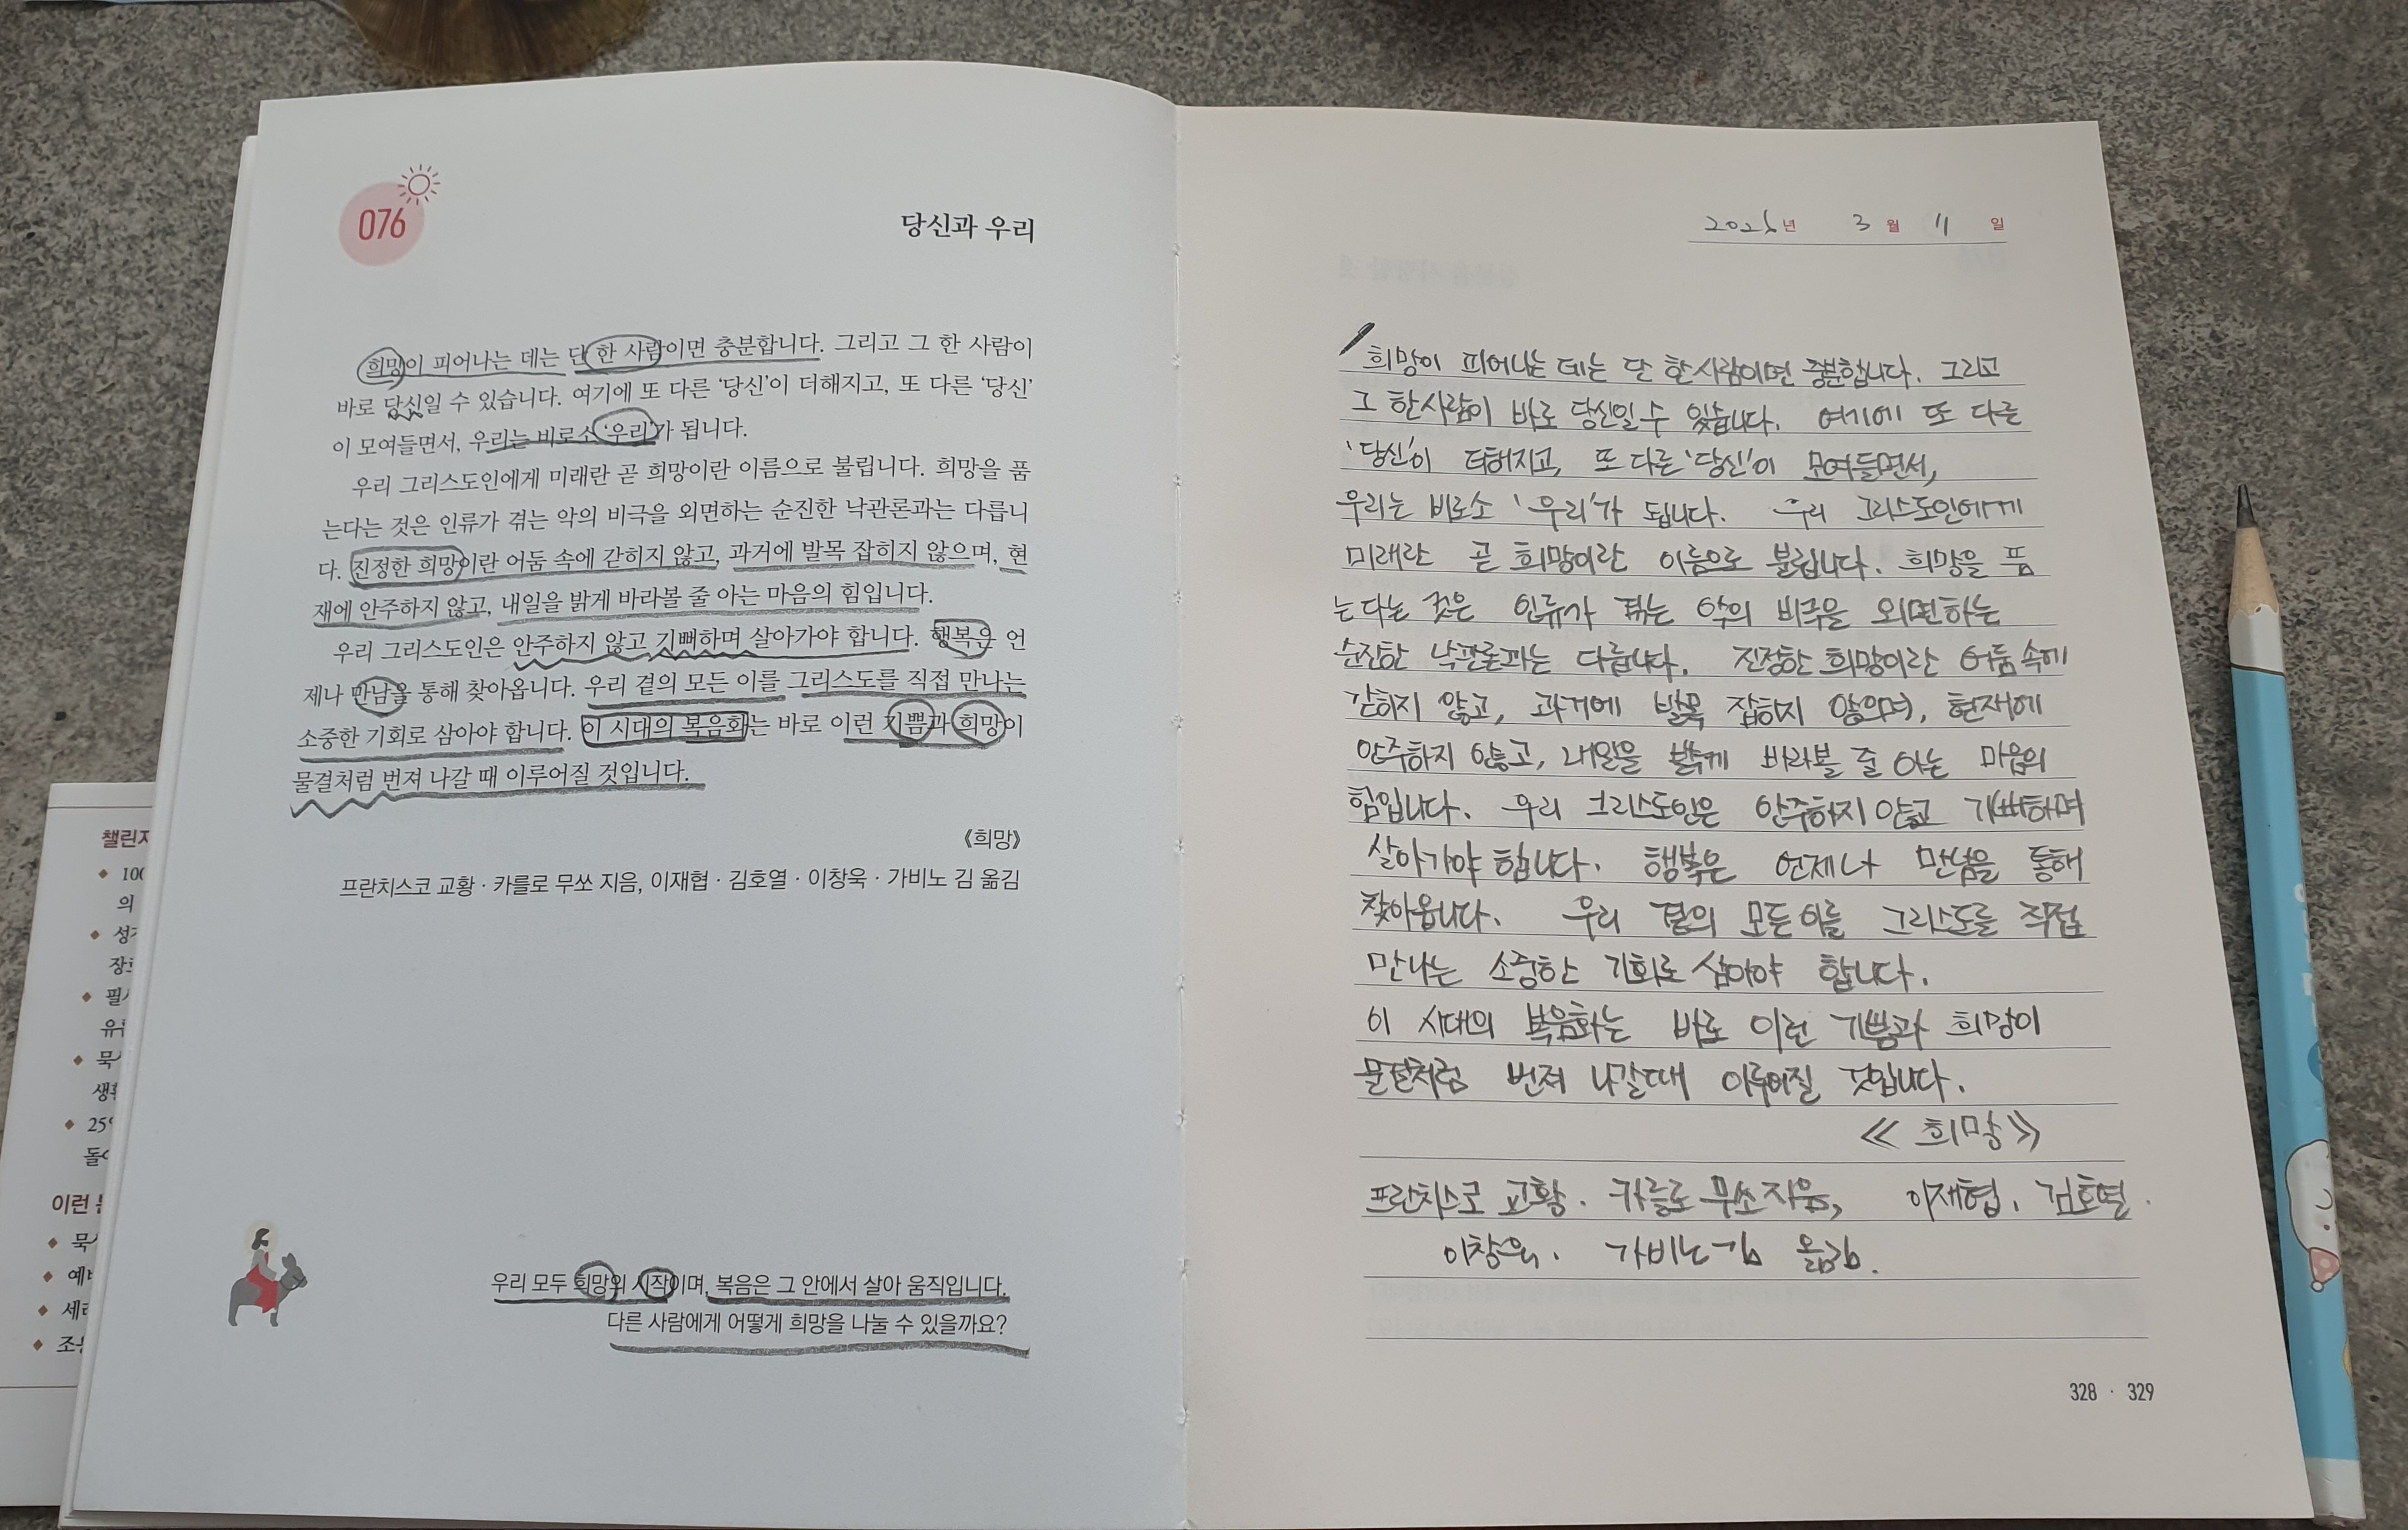 076
당신과 우리
희망이 피어나는 데는 단 한 사람이면 충분합니다. 그리고 그 한 사람이
바로 당신일 수 있습니다. 여기에 또 다른 '당신'이 더해지고, 또 다른 '당신'
이 모여들면서, 우리는 비로소 '우리'가 됩니다.
우리 그리스도인에게 미래란 곧 희망이란 이름으로 불립니다. 희망을 품
는다는 것은 인류가 겪는 악의 비극을 외면하는 순진한 낙관론과는 다릅니
다. 진정한 희망이란 어둠 속에 갇히지 않고, 과거에 발목 잡히지 않으며, 현
재에 안주하지 않고, 내일을 밝게 바라볼 줄 아는 마음의 힘입니다.
우리 그리스도인은 안주하지 않고 기뻐하며 살아가야 합니다. 행복은 언
제나 만남을 통해 찾아옵니다. 우리 곁의 모든 이를 그리스도를 직접 만나는
소중한 기회로 삼아야 합니다. 이 시대의 복음화는 바로 이런 기쁨과 희망이
물결처럼 번져 나갈 때 이루어질 것입니다.
《희망》
프란치스코 교황 · 카를로 무쏘 지음, 이재협 · 김호열 · 이창욱 · 가비노 김 옮김
우리 모두 희망의 시작이며, 복음은 그 안에서 살아 움직입니다.
다른 사람에게 어떻게 희망을 나눌 수 있을까요?
챌린지
100
의
필사
25
이런
2026년 3월 11일
희망이 피어나는 데는 단 한 사람이면 충분합니다. 그리고
그 한사람이 바로 당신일 수 있습니다. 여기에 또 다른
'당신'이 더해지고, 또 다른 '당신'이 모여들면서,
우리는 비로소 '우리'가 됩니다. 우리 그리스도인에게
미래란 곧 희망이란 이름으로 불립니다. 희망을 품
는다는 것은 인류가 겪는 악의 비극을 외면하는
순진한 낙관론과는 다릅니다. 진정한 희망이란 어둠 속에
갇히지 않고, 과거에 발목 잡히지 않으며, 현재에
안주하지 않고, 내일을 밝게 바라볼 줄 아는 마음의
힘입니다. 우리 그리스도인은 안주하지 않고 기뻐하며
살아가야 합니다. 행복은 언제나 만남을 통해
찾아옵니다. 우리 곁의 모든 이를 그리스도를 직접
만나는 소중한 기회로 삼아야 합니다.
이 시대의 복음화는 바로 이런 기쁨과 희망이
물결처럼 번져 나갈때 이루어질 것입니다.
《희망》
프란치스코 교황. 카를로 무쏘 지음, 이재협. 김호열.
이창욱. 가비노 김 옮김.
328 · 329